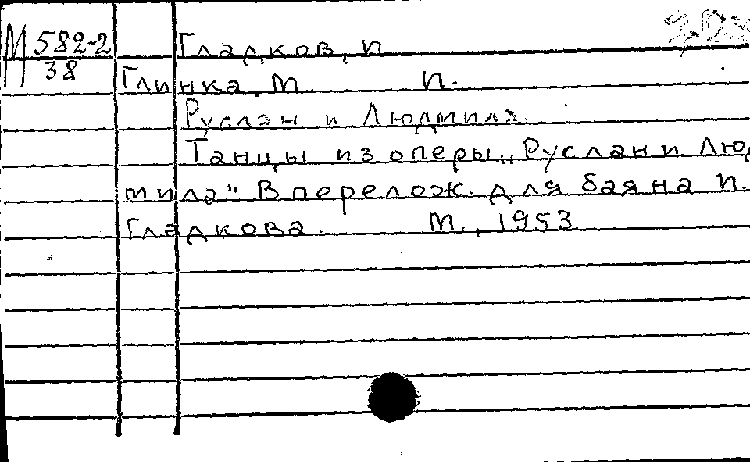 М 582-2 Гладков, П.
38
Глинка М. П.
Руслан и Людмила
Танцы из оперы „Руслан и Люд
мила" В перелож. для баяна П.
Гладкова. М., 1953